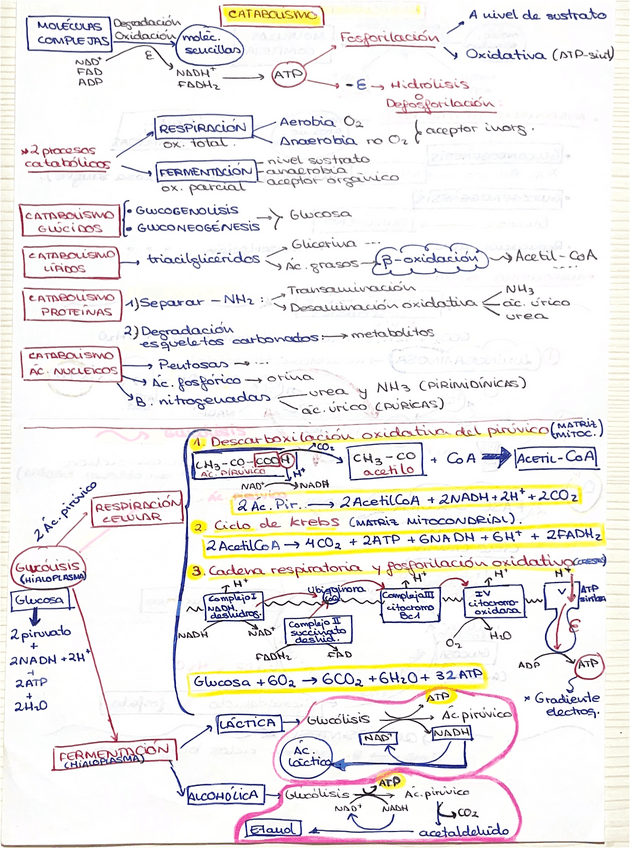 CATABOLISMO
MOLÉCULAS COMPLEJAS
Degradación
Oxidación
moléc. sencillas
NAD⁺
FAD
ADP
E
NADH⁺
FADH₂
ATP
Fosforilación
A nivel de sustrato
Oxidativa (ATP-sint)
-E → Hidrólisis
o
Defosforilación
*2 procesos catabólicos
RESPIRACIÓN
ox. total.
Aerobia O₂
Anaerobia no O₂
aceptor inorg.
FERMENTACIÓN
ox. parcial
nivel sustrato
anaerobia
aceptor orgánico
CATABOLISMO GLÚCIDOS
• GLUCOGENOLISIS
• GLUCONEOGÉNESIS
Glucosa
CATABOLISMO LÍPIDOS
→ triacilglicéridos
Glicerina ...
Ác. grasos → β-oxidación → Acetil-CoA
....
CATABOLISMO PROTEÍNAS
1) Separar -NH₂:
Transaminación
Desaminación oxidativa
NH₃
ác. úrico
urea
2) Degradación esqueletos carbonados: → metabolitos
CATABOLISMO ÁC. NUCLEICOS
Pentosas → ...
Ác. fosfórico → orina
B. nitrogenadas
urea y NH₃ (PIRIMIDÍNICAS)
ác. úrico (PÚRICAS)
1. Descarboxilación oxidativa del pirúvico (MATRIZ MITOC.)
CH₃-CO-COOH
ÁC. PIRÚVICO
CO₂
H⁺
NAD⁺ → NADH
CH₃-CO
acetilo
+ CoA → ACETIL-CoA
2 Ác. Pir. → 2 AcetilCoA + 2NADH + 2H⁺ + 2CO₂
2 Ciclo de Krebs (MATRIZ MITOCONDRIAL).
2 AcetilCoA → 4CO₂ + 2ATP + 6NADH + 6H⁺ + 2FADH₂
3. Cadena respiratoria y fosforilación oxidativa
H⁺
Complejo I
NADH deshidros.
NADH
NAD⁺
Complejo II
succinato deshid.
FADH₂
FAD
H⁺
Complejo III
citocromo
Bc1
H⁺
IV
citocromo-oxidasa
O₂
H₂O
H⁺
V
ATP sintasa
E
ADP
ATP
* Gradiente electroq.
Glucosa + 6O₂ → 6CO₂ + 6H₂O + 32 ATP
2 Ác. pirúvico
RESPIRACIÓN CELULAR
Glucólisis
(HIALOPLASMA)
Glucosa
2 piruvato
+
2NADH + 2H⁺
+
2ATP
+
2H₂O
FERMENTACIÓN
(HIALOPLASMA)
LÁCTICA
Glucólisis
ATP
Ác. pirúvico
NAD⁺
NADH
Ác. láctico
ALCOHÓLICA
Glucólisis
ATP
Ác. pirúvico
NAD⁺
NADH
CO₂
acetaldehído
Etanol